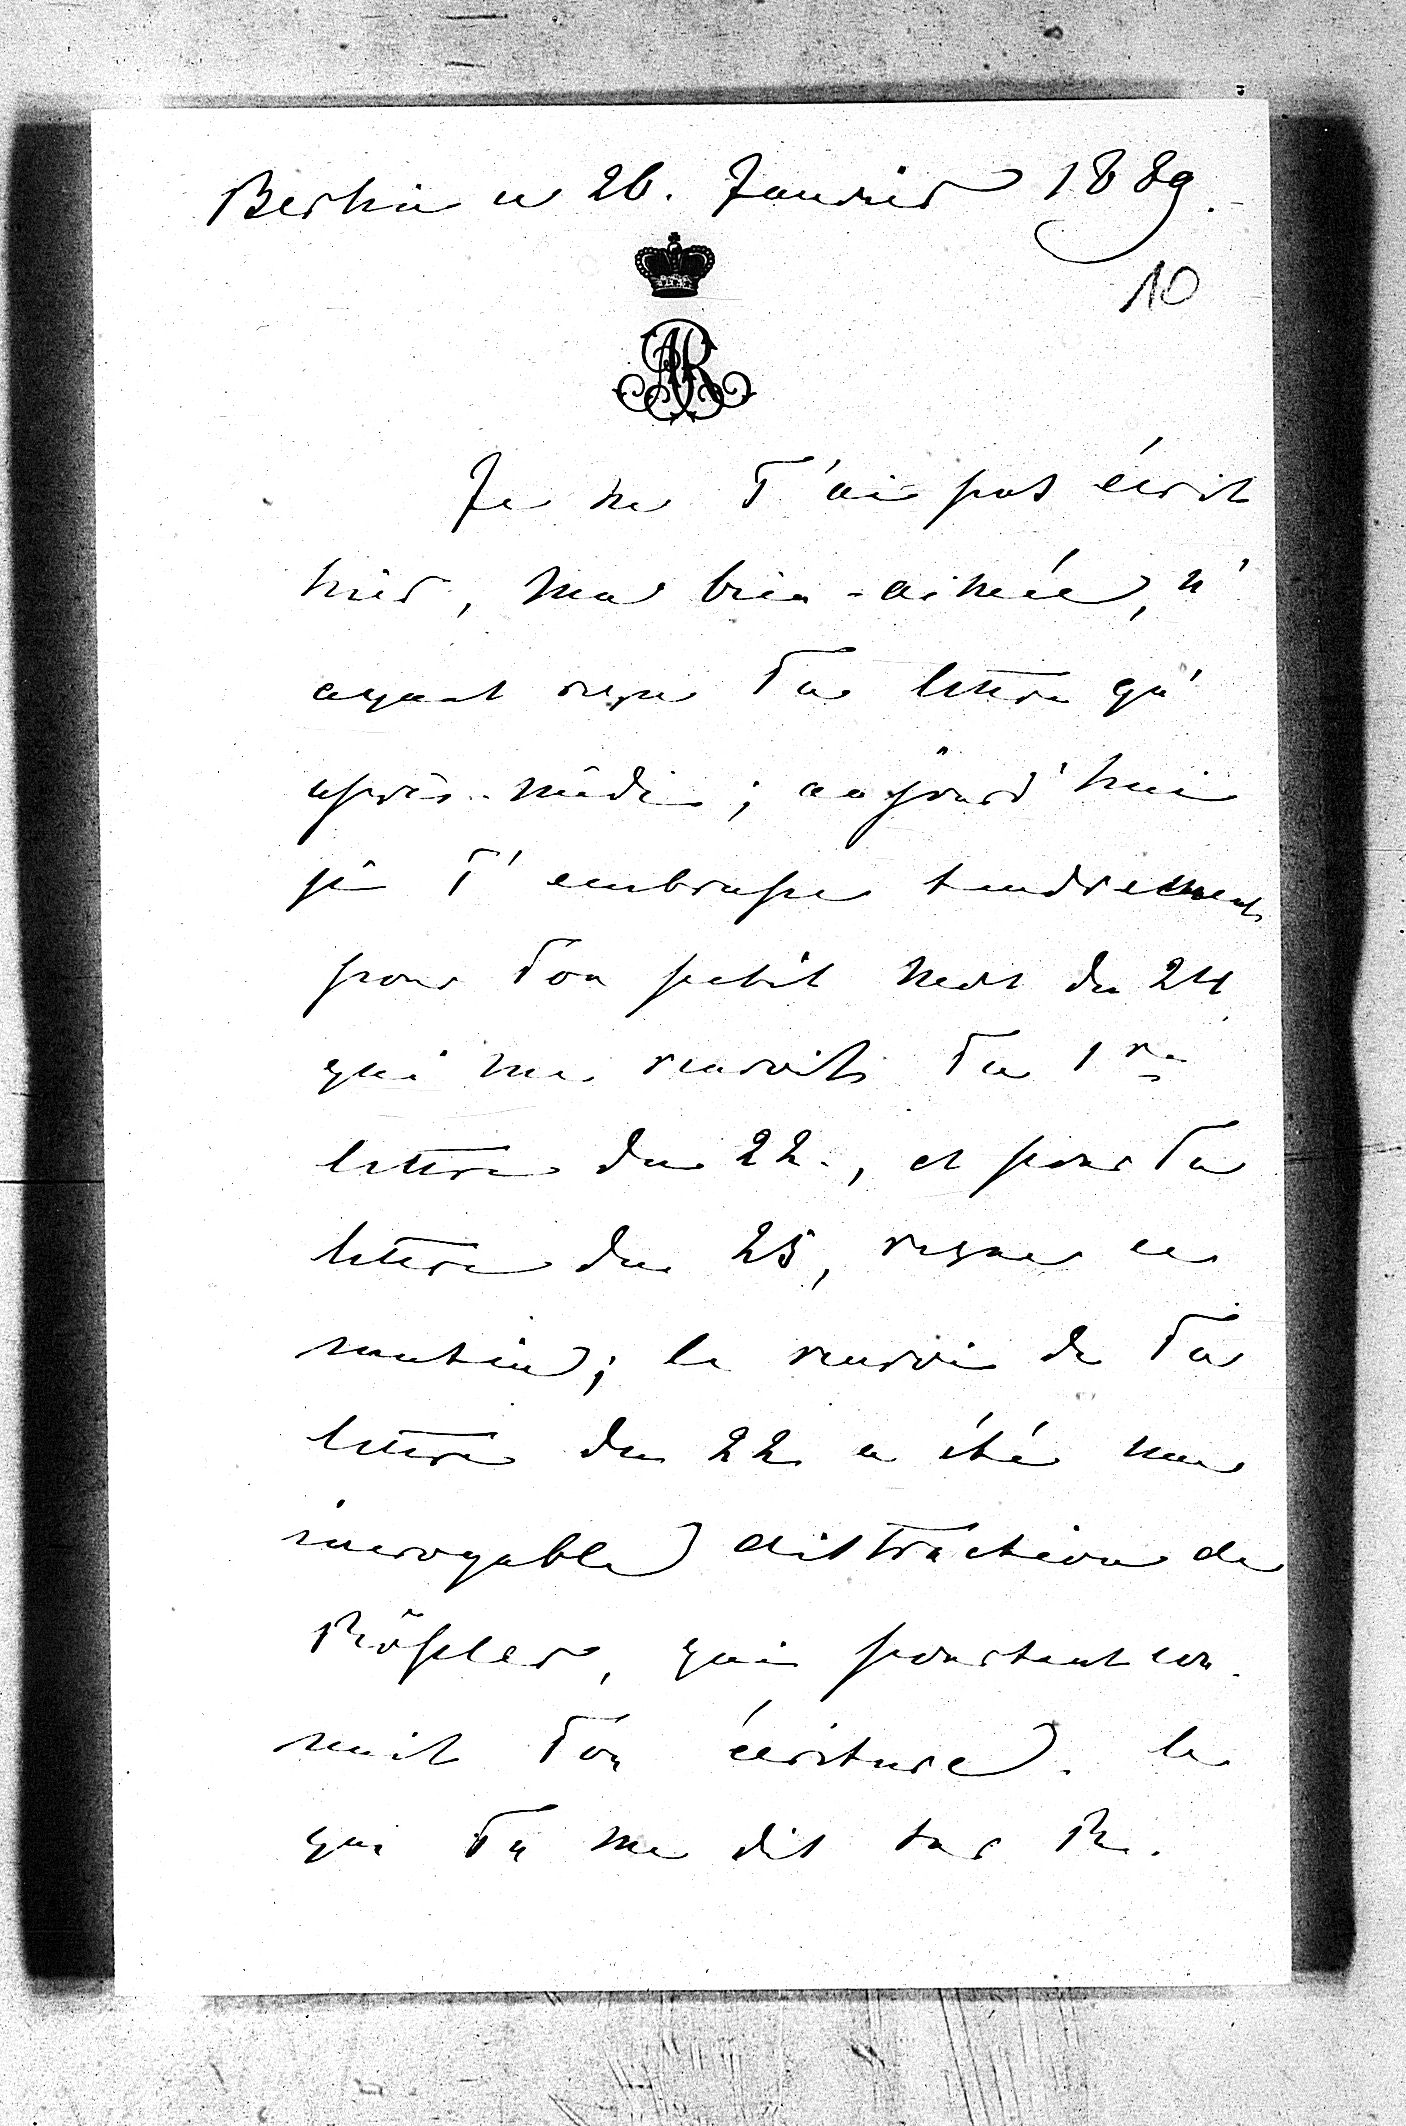 Berlin ce 26. Janvier 1889.
10
AR
Je ne T'ai pas écrit
hier, ma bien-aimée, n'
ayant reçu Ta lettre qu'
après-midi; aujourd'hui
je T'embrasse tendrement
pour Ton petit mot du 24
qui me renvoit Ta 1re
lettre du 22., et pour Ta
lettre du 25, reçue ce
matin; le renvoi de Ta
lettre du 22 a été une
incroyable distraction de
Rößler, qui pourtant con-
nait Ton écriture. Ce
que Tu me dis sur R.